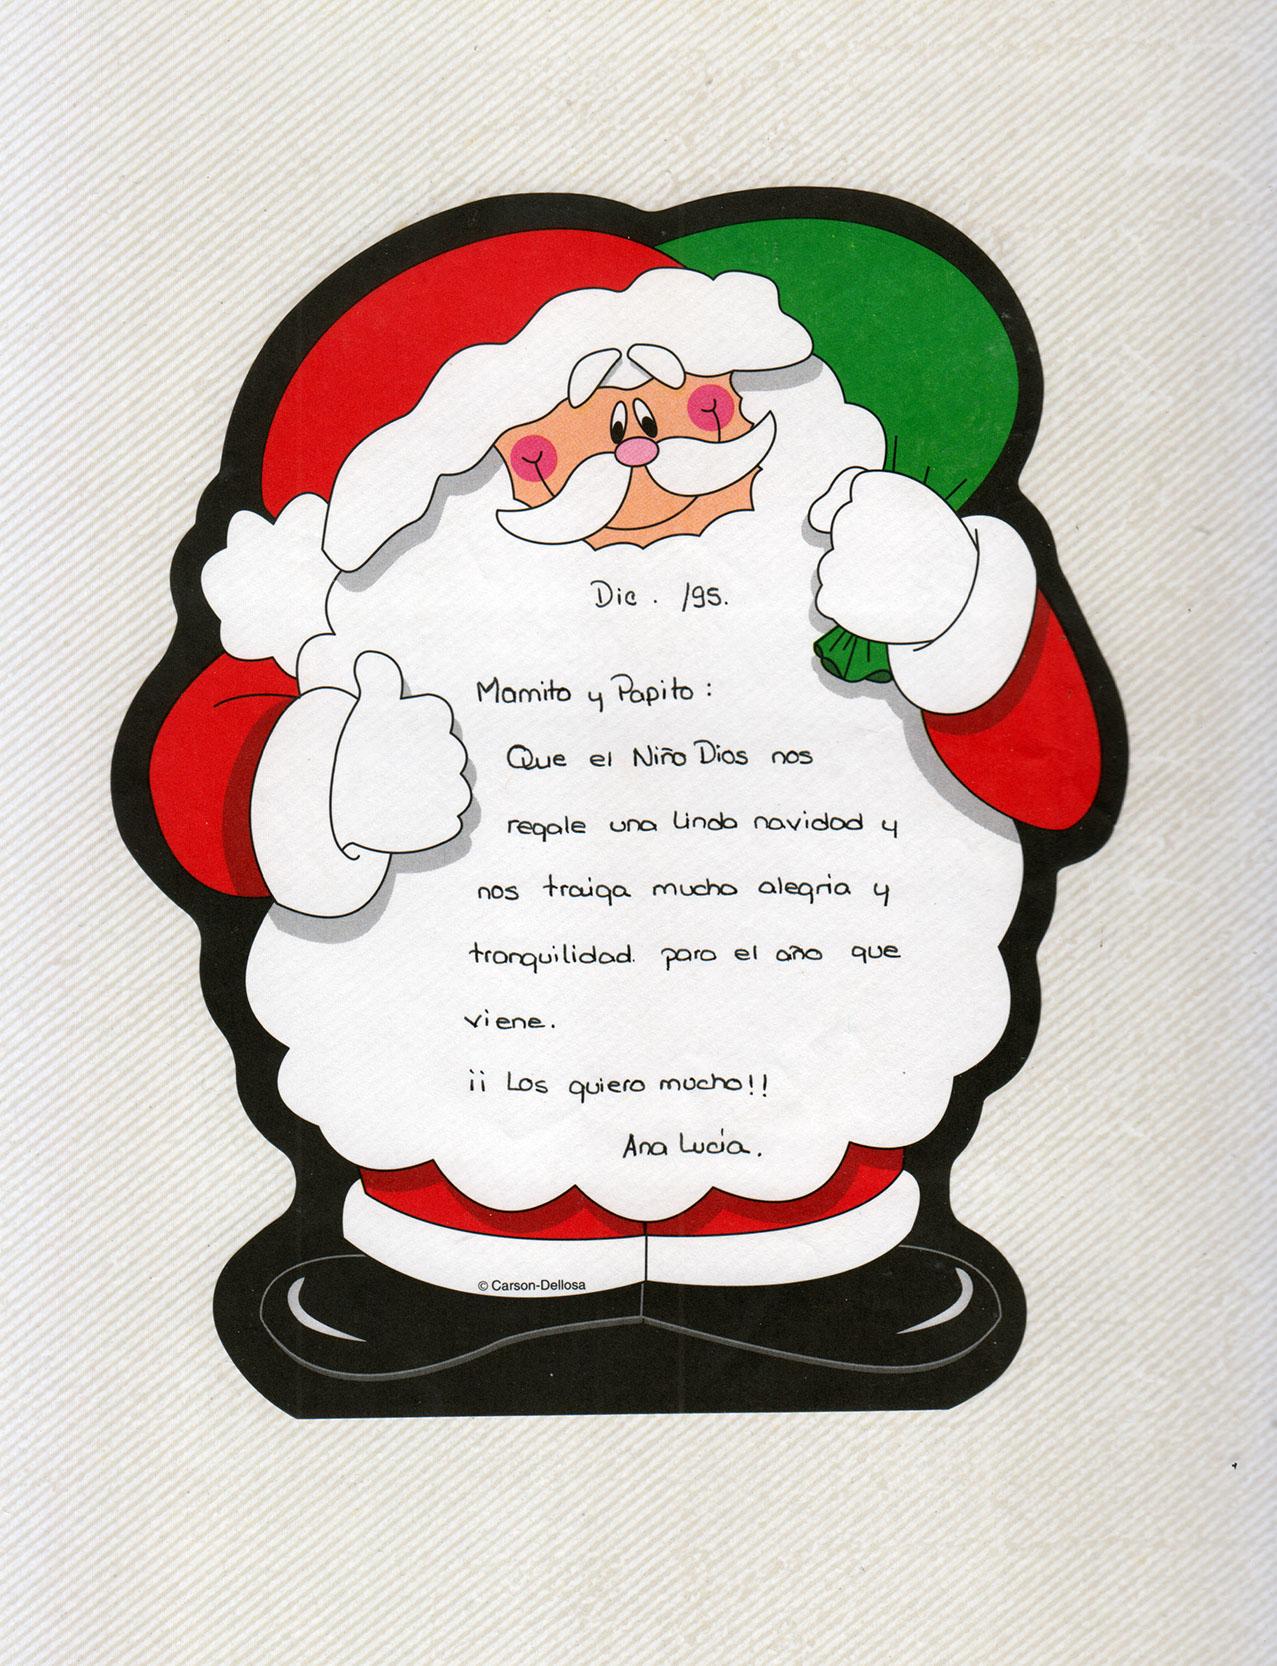 Dic. /95.
Mamito y Papito:
Que el Niño Dios nos
regale una linda navidad y
nos traiga mucha alegria y
tranquilidad. para el año que
viene.
¡¡ Los quiero mucho!!
Ana Lucía.
© Carson-Dellosa